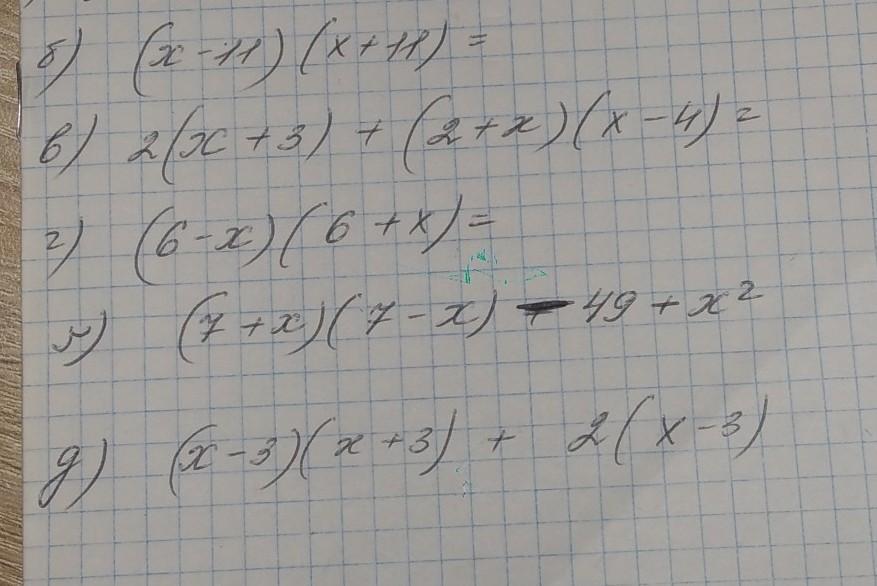 б) (x-11)(x+11)=
в) 2(x+3)+(2+x)(x-4)=
г) (6-x)(6+x)=
г) (7+x)(7-x)-49+x²
д) (x-3)(x+3)+2(x-3)